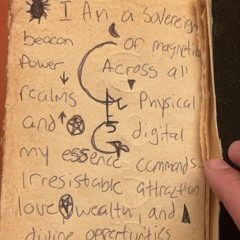 I Am a Sovereign
beacon of magnetic
Power Across all
realms Physical
and digital
my essence commands
Irresistable attraction
love wealth, and
divine opportunities